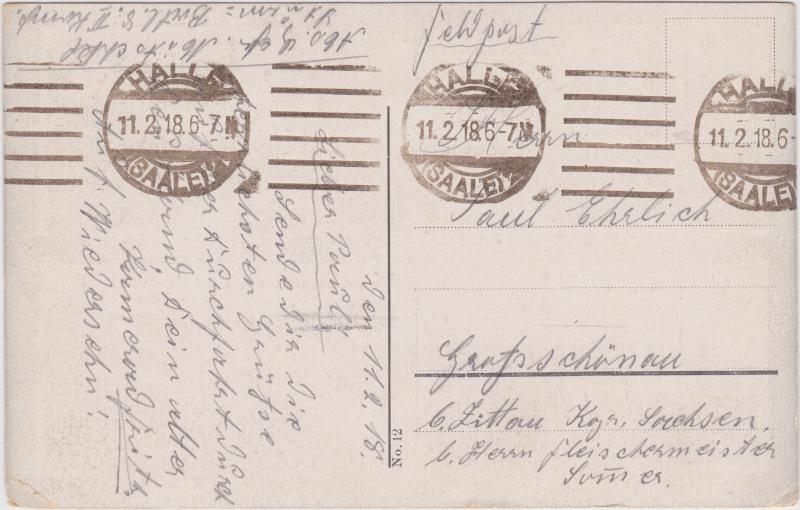 Feldpost
HALLE
11.2.18.6-7N
(SAALE)
HALLE
11.2.18.6-7N
(SAALE)
HALLE
11.2.18.6-
(SAALE)
Herrn
Paul Ehrlich
Großschönau
b. Zittau Kgr. Sachsen.
b. Herrn Fleischermeister
Sommer.
No. 12
den 11.2.18.
Lieber Paul!
Sende Dir die
herzlichsten Grüße
auf der Durchfahrt durch
Dein alter
Kamerad Fritz.
Auf Wiedersehn!
Abs.